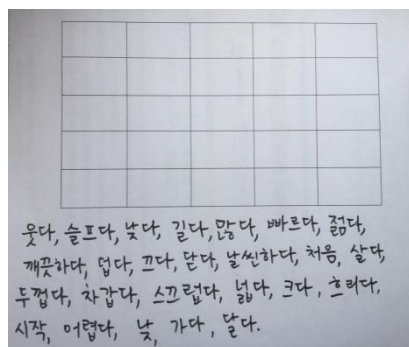 웃다, 슬프다, 낮다, 길다, 많다, 빠르다, 젊다,
깨끗하다, 덥다, 끄다, 닫다, 날씬하다, 처음, 살다,
두껍다, 차갑다, 스끄럽다, 넓다, 크다, 흐리다,
시작, 어렵다, 낮, 가다, 달다.